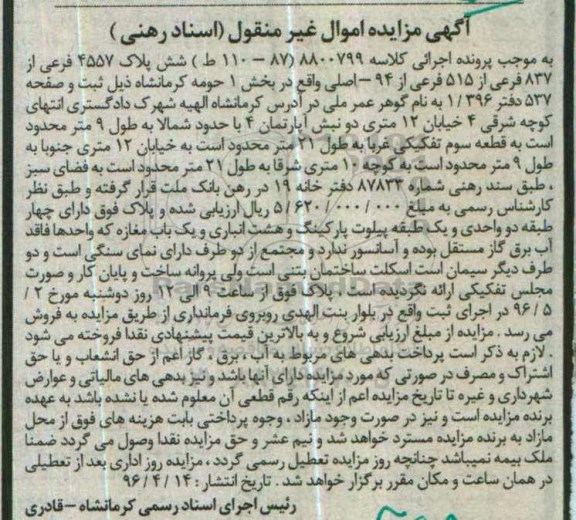 آگهی مزایده اموال غیر منقول (اسناد رهنی)
به موجب پرونده اجرائی کلاسه ۸۸۰۰۷۹۹ (۸۷ - ۱۱۰ ط) شش پلاک ۴۵۵۷ فرعی از
۸۳۷ فرعی از ۵۱۵ فرعی از ۹۴ - اصلی واقع در بخش ۱ حومه کرمانشاه ذیل ثبت و صفحه
۵۳۷ دفتر ۱/۳۹۶ به نام گوهر عمر ملی در آدرس کرمانشاه الهیه شهرک دادگستری انتهای
کوچه شرقی ۴ خیابان ۱۲ متری دو نبش آپارتمان ۴ با حدود شمالا به طول ۹ متر محدود
است به قطعه سوم تفکیکی غربا به طول ۲۱ متر محدود است به خیابان ۱۲ متری جنوبا به
طول ۹ متر محدود است به کوچه ۱۰ متری شرقا به طول ۲۱ متر محدود است به فضای سبز
، طبق سند رهنی شماره ۸۷۸۳۳ دفتر خانه ۱۹ در رهن بانک ملت قرار گرفته و طبق نظر
کارشناس رسمی به مبلغ ۵/۶۲۰/۰۰۰/۰۰۰ ریال ارزیابی شده و پلاک فوق دارای چهار
طبقه دو واحدی و یک طبقه پیلوت پارکینگ و هشت انباری و یک باب مغازه که واحدها فاقد
آب برق گاز مستقل بوده و آسانسور ندارد و مجتمع از دو طرف دارای نمای سنگی است و دو
طرف دیگر سیمان است اسکلت ساختمان بتنی است ولی پروانه ساخت و پایان کار و صورت
مجلس تفکیکی ارائه نگردیده است ، پلاک فوق از ساعت ۹ الی ۱۲ روز دوشنبه مورخ ۲/
۹۶/۵ در اجرای ثبت واقع در بلوار بنت الهدی روبروی فرمانداری از طریق مزایده به فروش
می رسد . مزایده از مبلغ ارزیابی شروع و به بالاترین قیمت پیشنهادی نقدا فروخته می شود
. لازم به ذکر است پرداخت بدهی های مربوط به آب ، برق ، گاز اعم از حق انشعاب و یا حق
اشتراک و مصرف در صورتی که مورد مزایده دارای آنها باشد و نیز بدهی های مالیاتی و عوارض
شهرداری و غیره تا تاریخ مزایده اعم از اینکه رقم قطعی آن معلوم شده یا نشده باشد به عهده
برنده مزایده است و نیز در صورت وجود مازاد ، وجوه پرداختی بابت هزینه های فوق از محل
مازاد به برنده مزایده مسترد خواهد شد و نیم عشر و حق مزایده نقدا وصول می گردد ضمنا
ملک بیمه نمیباشد چنانچه روز مزایده تعطیل رسمی گردد ، مزایده روز اداری بعد از تعطیلی
در همان ساعت و مکان مقرر برگزار خواهد شد . تاریخ انتشار : ۹۶/۴/۱۴
رئیس اجرای اسناد رسمی کرمانشاه - قادری